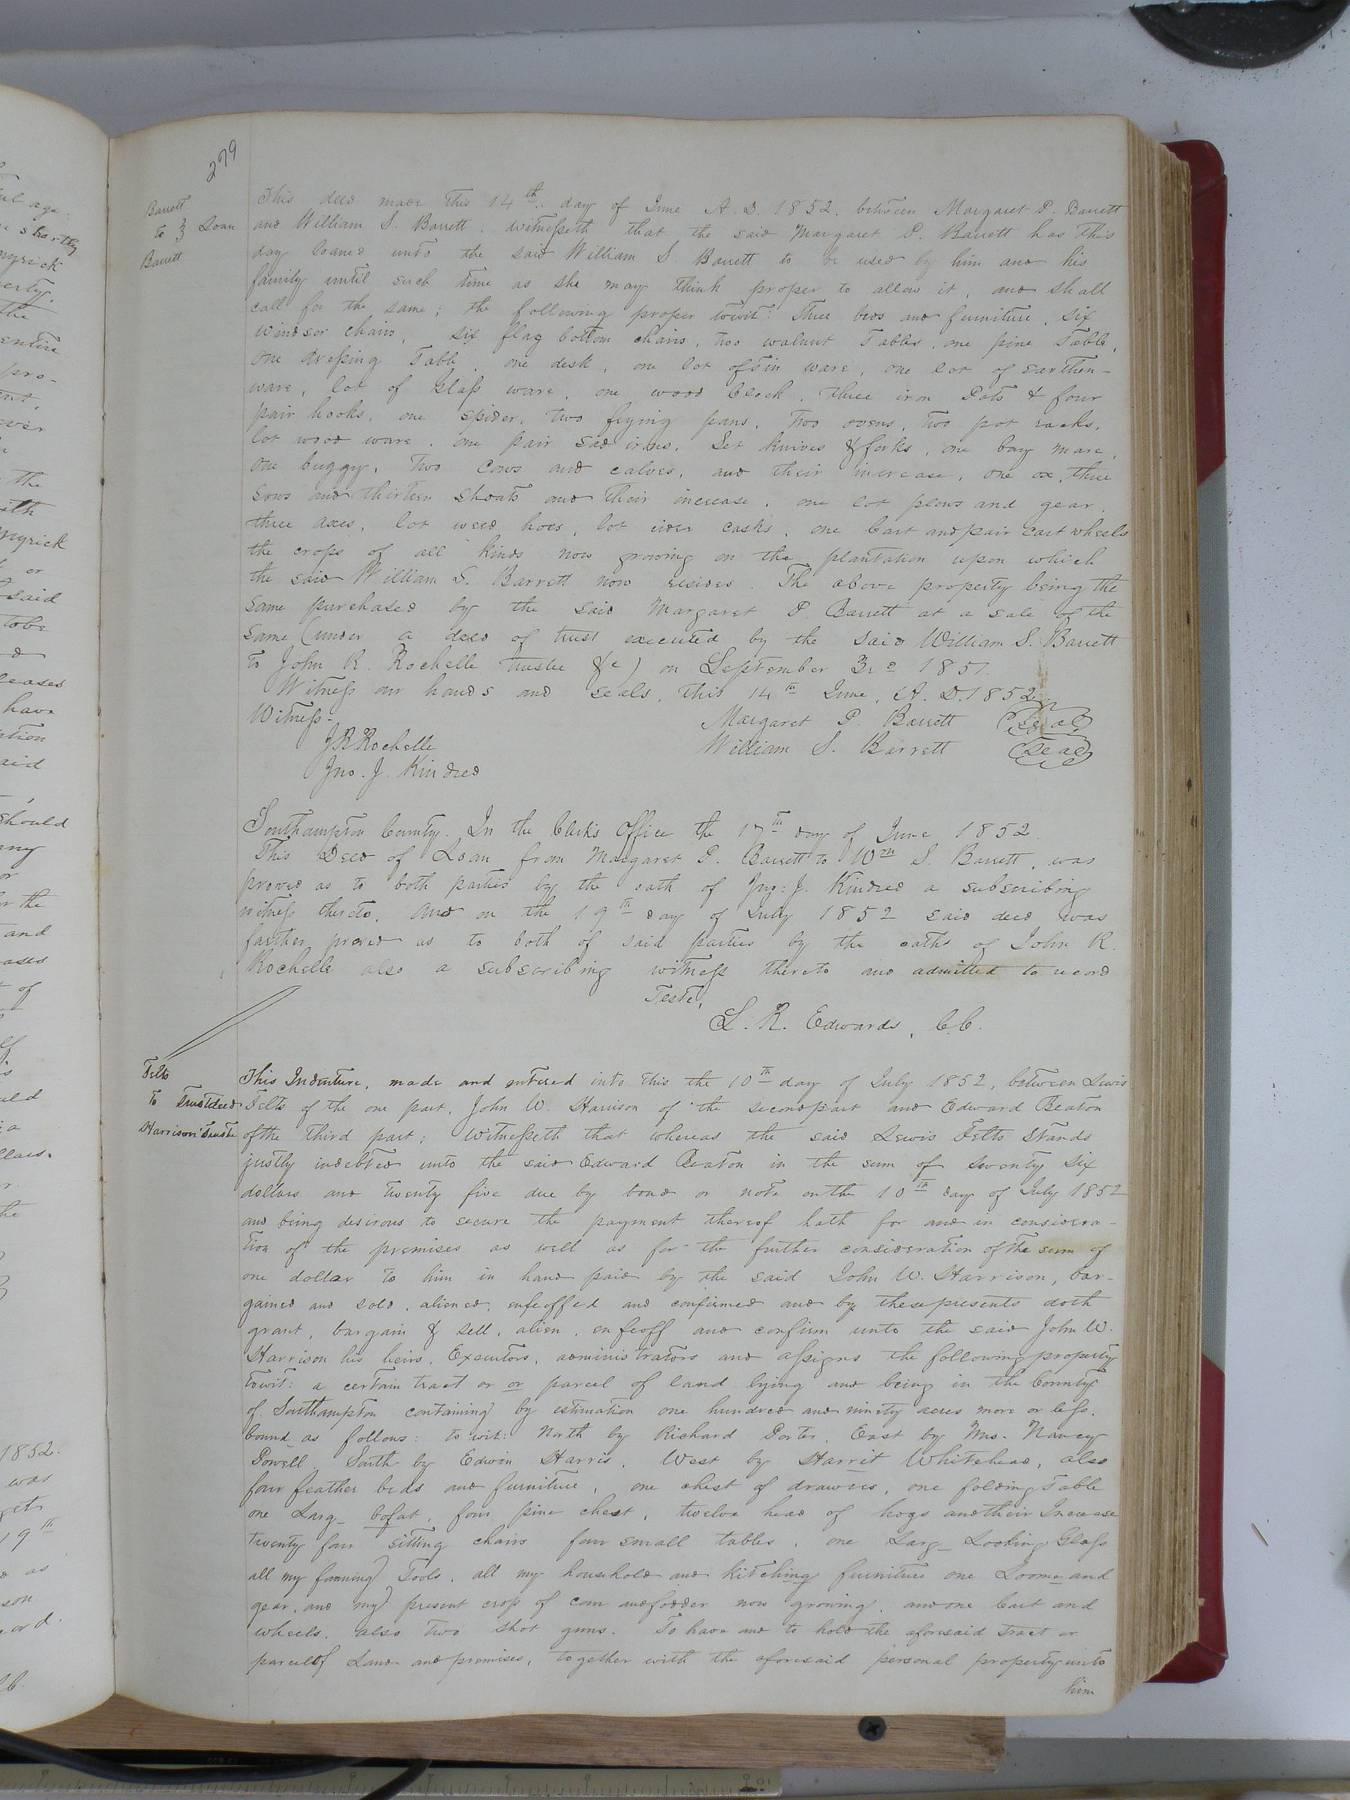 279
Barrett
to } Loan
Barrett
This deed made this 14th day of June A. D. 1852. between Margaret P. Barrett
and William S. Barrett. witnesseth that the said Margaret P. Barrett has this
day loaned unto the said William S. Barrett to be used by him and his
family until such time as she may think proper to allow it, and shall
call for the same; the following proper towit: Three beds and furniture, six
Windsor chairs, six flag bottom chairs, two walnut Tables, one pine Table,
one dressing Table, one desk, one lot of tin ware, one lot of earthen-
ware, lot of Glass ware, one wood Clock, three iron Pots & four
pair hooks, one spider, two frying pans, two ovens, two pot racks,
lot wood ware, one pair sad irons, Set knives & forks, one bay mare,
one buggy, Two Cows and calves, and their increase, one ox, three
sows and thirteen shoats and their increase, one lot plows and gear,
three axes, lot weed hoes, lot cider casks, one Cart and pair cart wheels
the crops of all kinds now growing on the plantation upon which
the said William S. Barrett now resides The above property being the
same purchased by the said Margaret P. Barrett at a sale of the
same (under a deed of trust executed by the said William S. Barrett
to John R. Rochelle trustee &c) on September 3rd 1851.
Witness our hands and seals, this 14th June, A. D. 1852.
Witness-
Margaret P. Barrett (Seal)
J R Rochelle
William S. Barrett (Seal)
Jno. J. Kindred
Southampton County. In the Clerk's Office the 17th day of June 1852.
This Deed of Loan from Margaret P. Barrett to Wm S. Barrett, was
proved as to both parties by the oath of Jno: J. Kindred a subscribing
witness thereto. And on the 19th day of July 1852 said deed was
farther proved as to both of said parties by the oaths of John R.
Rochelle also a subscribing witness thereto and admitted to record
Teste,
L. R. Edwards, C.C.
Felts
To Trust deed
Harrison Trustee
This Indenture, made and entered into this the 10th day of July 1852, between Lewis
Felts of the one part, John W. Harrison of the second part and Edward Beaton
of the third part; Witnesseth that whereas the said Lewis Felts stands
justly indebted unto the said Edward Beaton in the sum of seventy six
dollars and twenty five due by bond or note on the 10th day of July 1852
and being desirous to secure the payment thereof hath for and in considera-
tion of the premises as well as for the further consideration of the sum of
one dollar to him in hand paid by the said John W. Harrison, bar-
gained and sold, aliened, enfeoffed and confirmed and by these presents doth
grant, bargain & sell, alien, enfeoff and confirm unto the said John W.
Harrison his heirs, Executors, administrators and assigns the following property
towit: a certain tract or or parcel of land lying and being in the County
of Southampton containing by estimation one hundred and ninety acres more or less.
bound as follows: to wit: North by Richard Porter, East by Mrs. Nancy
Powell, South by Edwin Harris, West by Harrit Whitehead, also
four feather beds and furniture, one chest of drawers, one folding Table
one Larg bofat, four pine chest, twelve head of hogs and their Increase
twenty four sitting chairs four small tables, one Larg Looking Glass
all my farming Tools, all my household and kitching furniture one Loome and
gear, and my present crop of corn and fodder now growing, and one Cart and
wheels, also two shot guns. To have and to hold the aforesaid Tract or
parcel of Land and premises, together with the aforesaid personal property unto
him